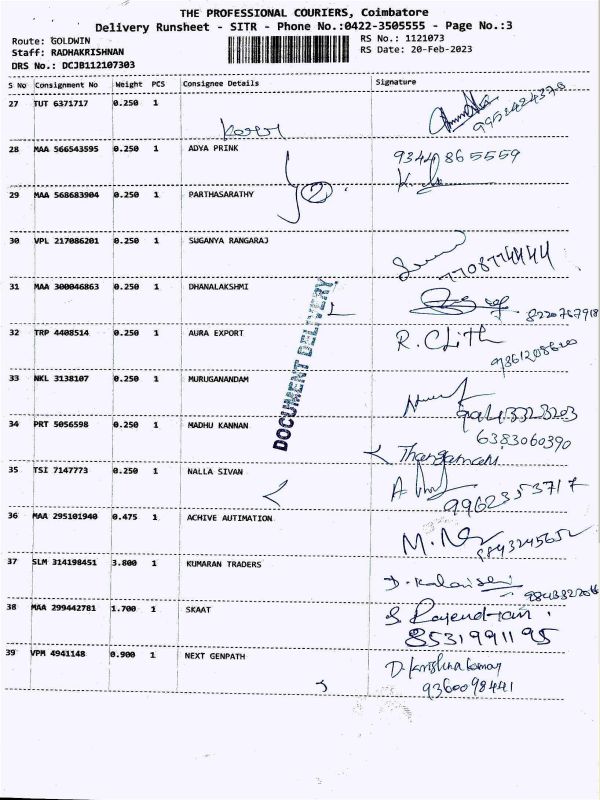 THE PROFESSIONAL COURIERS, Coimbatore
Delivery Runsheet - SITR - Phone No.:0422-3505555 - Page No.:3
Route: GOLDWIN
RS No.: 1121073
Staff: RADHAKRISHNAN
RS Date: 20-Feb-2023
DRS No.: DCJB112107303
S No Consignment No Weight PCS Consignee Details Signature
27 TUT 6371717 0.250 1
28 MAA 566543595 0.250 1 ADYA PRINK 9344865559
29 MAA 568683904 0.250 1 PARTHASARATHY
30 VPL 217086201 0.250 1 SUGANYA RANGARAJ
7708774444
31 MAA 300046863 0.250 1 DHANALAKSHMI
8220767918
32 TRP 4408514 0.250 1 AURA EXPORT R.
33 NKL 3138107 0.250 1 MURUGANANDAM
34 PRT 5056598 0.250 1 MADHU KANNAN 6383060390
Thangamani
35 TSI 7147773 0.250 1 NALLA SIVAN
9962353717
36 MAA 295101940 0.475 1 ACHIVE AUTIMATION
37 SLM 314198451 3.800 1 KUMARAN TRADERS
38 MAA 299442781 1.700 1 SKAAT
8531991195
39 VPM 4941148 0.900 1 NEXT GENPATH
9360098441
DOCUMENT DELIVERY